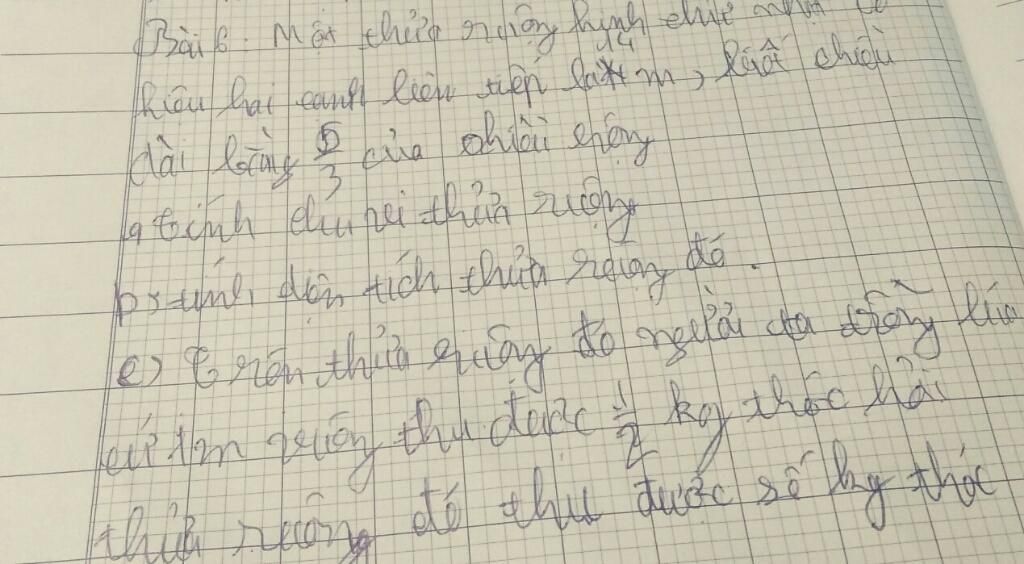 Bài 6. Một thửa ruộng hình chữ nhật có
hiệu hai cạnh liên tiếp là 14 m, biết chiều
dài bằng 5/3 của chiều rộng
a tính chu vi thửa ruộng
b, tính diện tích thửa ruộng đó.
c) trên thửa ruộng đó người ta trồng lúa
cứ 1m ruộng thu được 1/2 kg thóc hỏi
thửa ruộng đó thu được số kg thóc